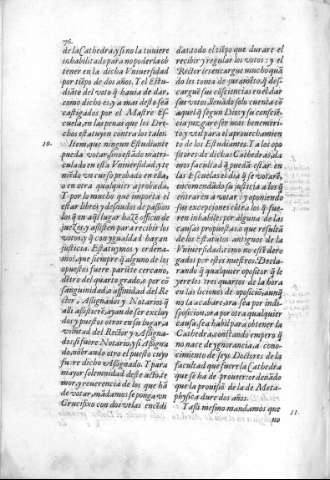 76.
de la Cathedra, y si no la tuviere
inhabilitado para no poderla ob
tener en la dicha Vniuersidad
por tiẽpo de dos años. Y el Estu-
diãte del voto q̃ hauia de dar,
como dicho es, y a mas deste seã
castigados por el Mastre Es-
cuela, en las penas que los Dre-
chos estatuyen contra los tales.
10. Item que ningun Estudiante
pueda votar, sino estãdo matri-
culado en esta Vniuersidad, y te
niẽdo vn curso probado en ella,
o en otra qualquier aprobada,
Y por lo mucho que importa el
estar libres y desnudos de passiõn
los q̃ en aq̃l lugar hazẽ officio de
juezes, y assistẽ para recibir los
votos, y q̃ con ygualdad se hagan
justicia. Estatuymos y ordena-
mos, que siempre q̃ alguno de los
opuestos fuere pariẽte cercano,
dẽtro del quarto grado, por cõ
sanguinidad, o affinidad del Re-
ctor, Assignados y Notarios q̃
alli assistierẽ, ayan de ser exclu-
dos y puestos otros en su lugar, a
voluntad del Rector y Assigna-
dos, si fuere Notario, y si Assigna
do, nõbrando otro el puesto cuyo
fuere dicho Assignado. Y para
mayor solemnidad deste acto, te-
mor, y reuerencia de los que hã
de votar, mãdamos se ponga vn
Crucifixo con dos velas encẽdi
das todo el tiẽpo que durare el
recibir y regular los votos: y el
Rector les encargue mucho quã
do les toma de juramẽto, q̃ des-
carguẽ sus cõsciencias en el dar
sus votos, lleuãdo solo cuenta cõ
aquel q̃ segun Dios y su consciẽ-
cia juzgare ser mas benemeri-
to, y vtil para el aprouechamien
to de los Estudiantes. Y a los opo
sitores de dichas Cathedras, da
mos facultad q̃ puedã estar en
las Escuelas el dia q̃ se votarẽ,
encomendãdo su justicia a los q̃
entrarẽ a votar: y oponiendo
sus excepciones cõtra los q̃ fue-
ren inhabiles, por alguna de las
causas propuestas, o que resultã
de los Estatutos antiguos de la
Vniuersidad, como no estẽ dero-
gados por estos nuestros. Decla-
rando q̃ qualquier opositor q̃ le
yere los tres quartos de la hora
en las lectiones de oposiciõ, aunq̃
no la acabare, ora sea por indis-
posicion, ora por otra qualquier
causa, sea habil para obtener da
Cathedra, constando empero q̃
no nace de ygnorancia, a cono-
cimiento de seys Doctores de la
facultad que fuere la Cathedra
que se ha de proueer: ordenãdo
que la prouisiõ de la de Meta-
physica dure dos años.
11. Y assi mesmo mandamos que
no